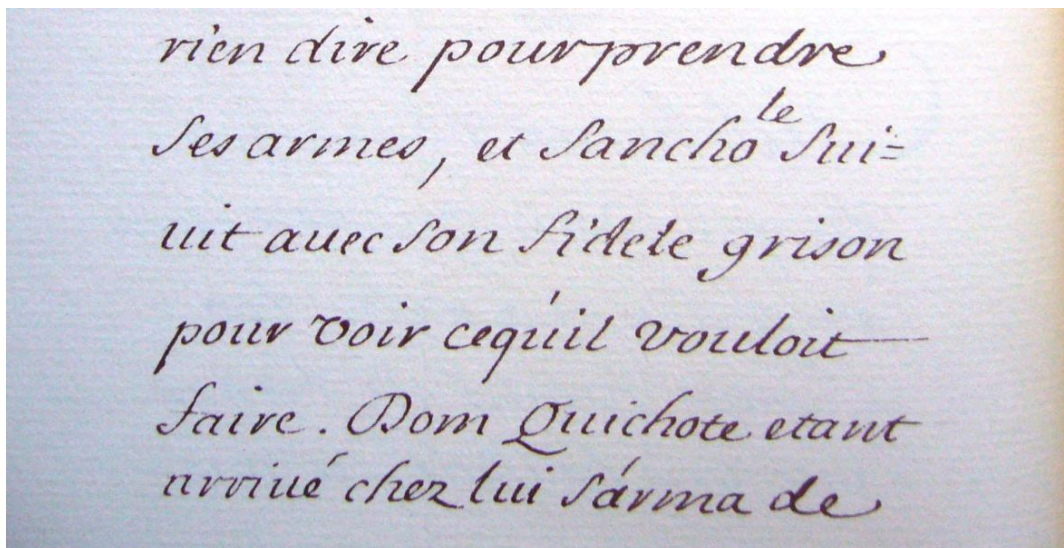 rien dire pour prendre
ses armes, et Sancho le sui=
uit auec son fidele grison
pour voir cequ'il vouloit
faire. Dom Quichote etant
arriué chez lui s'arma de